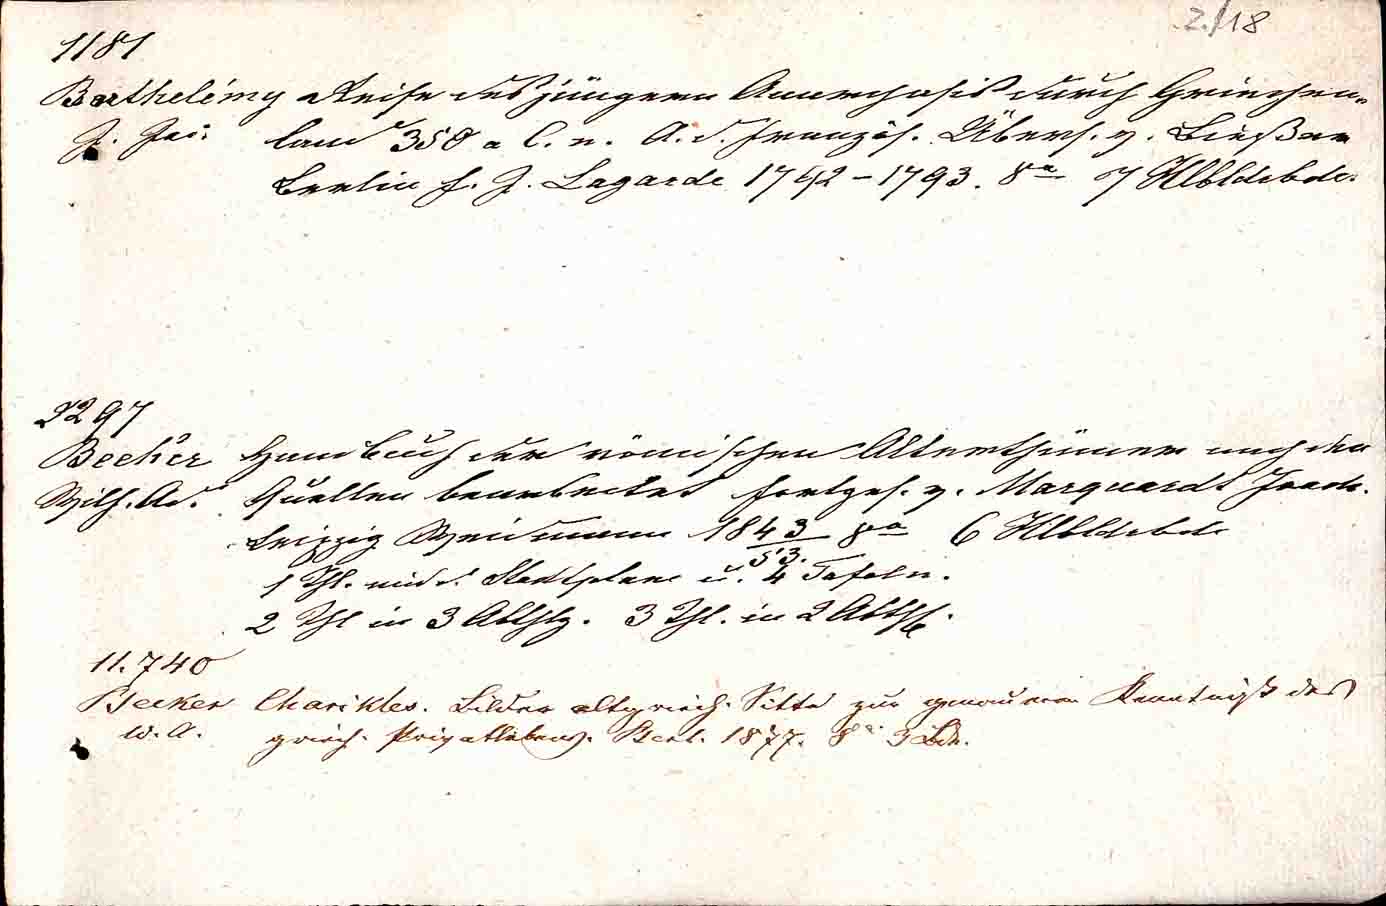 2./18
1181
Barthelémy Reise des jüngern Anarchasis durch Griechen-
J. Jac. land 350 a C. n. A. d. französ. Übers. v. Biester
Berlin f. J. Lagarde 1792-1793. 8° 7 Hlbldrbde.
2297
Becker Handbuch der römischen Alterthümer nach den
Wilh. Ad. Quellen bearbeitet fortges. v. Marquardt Joach.
Leipzig Weidmann 1843 8° 6 Hlbldrbde
53.
1 Thl. mit d. Stadtplane u. 4 Tafeln.
2 Thl in 3 Abthlg. 3 Thl. in 2 Abthlg.
11.740
Becker Charikles. Bilder altgriech. Sitte zur genaueren Kenntniß des
W. A. griech. Privatlebens. Berl. 1877. 8° 3 Bde.